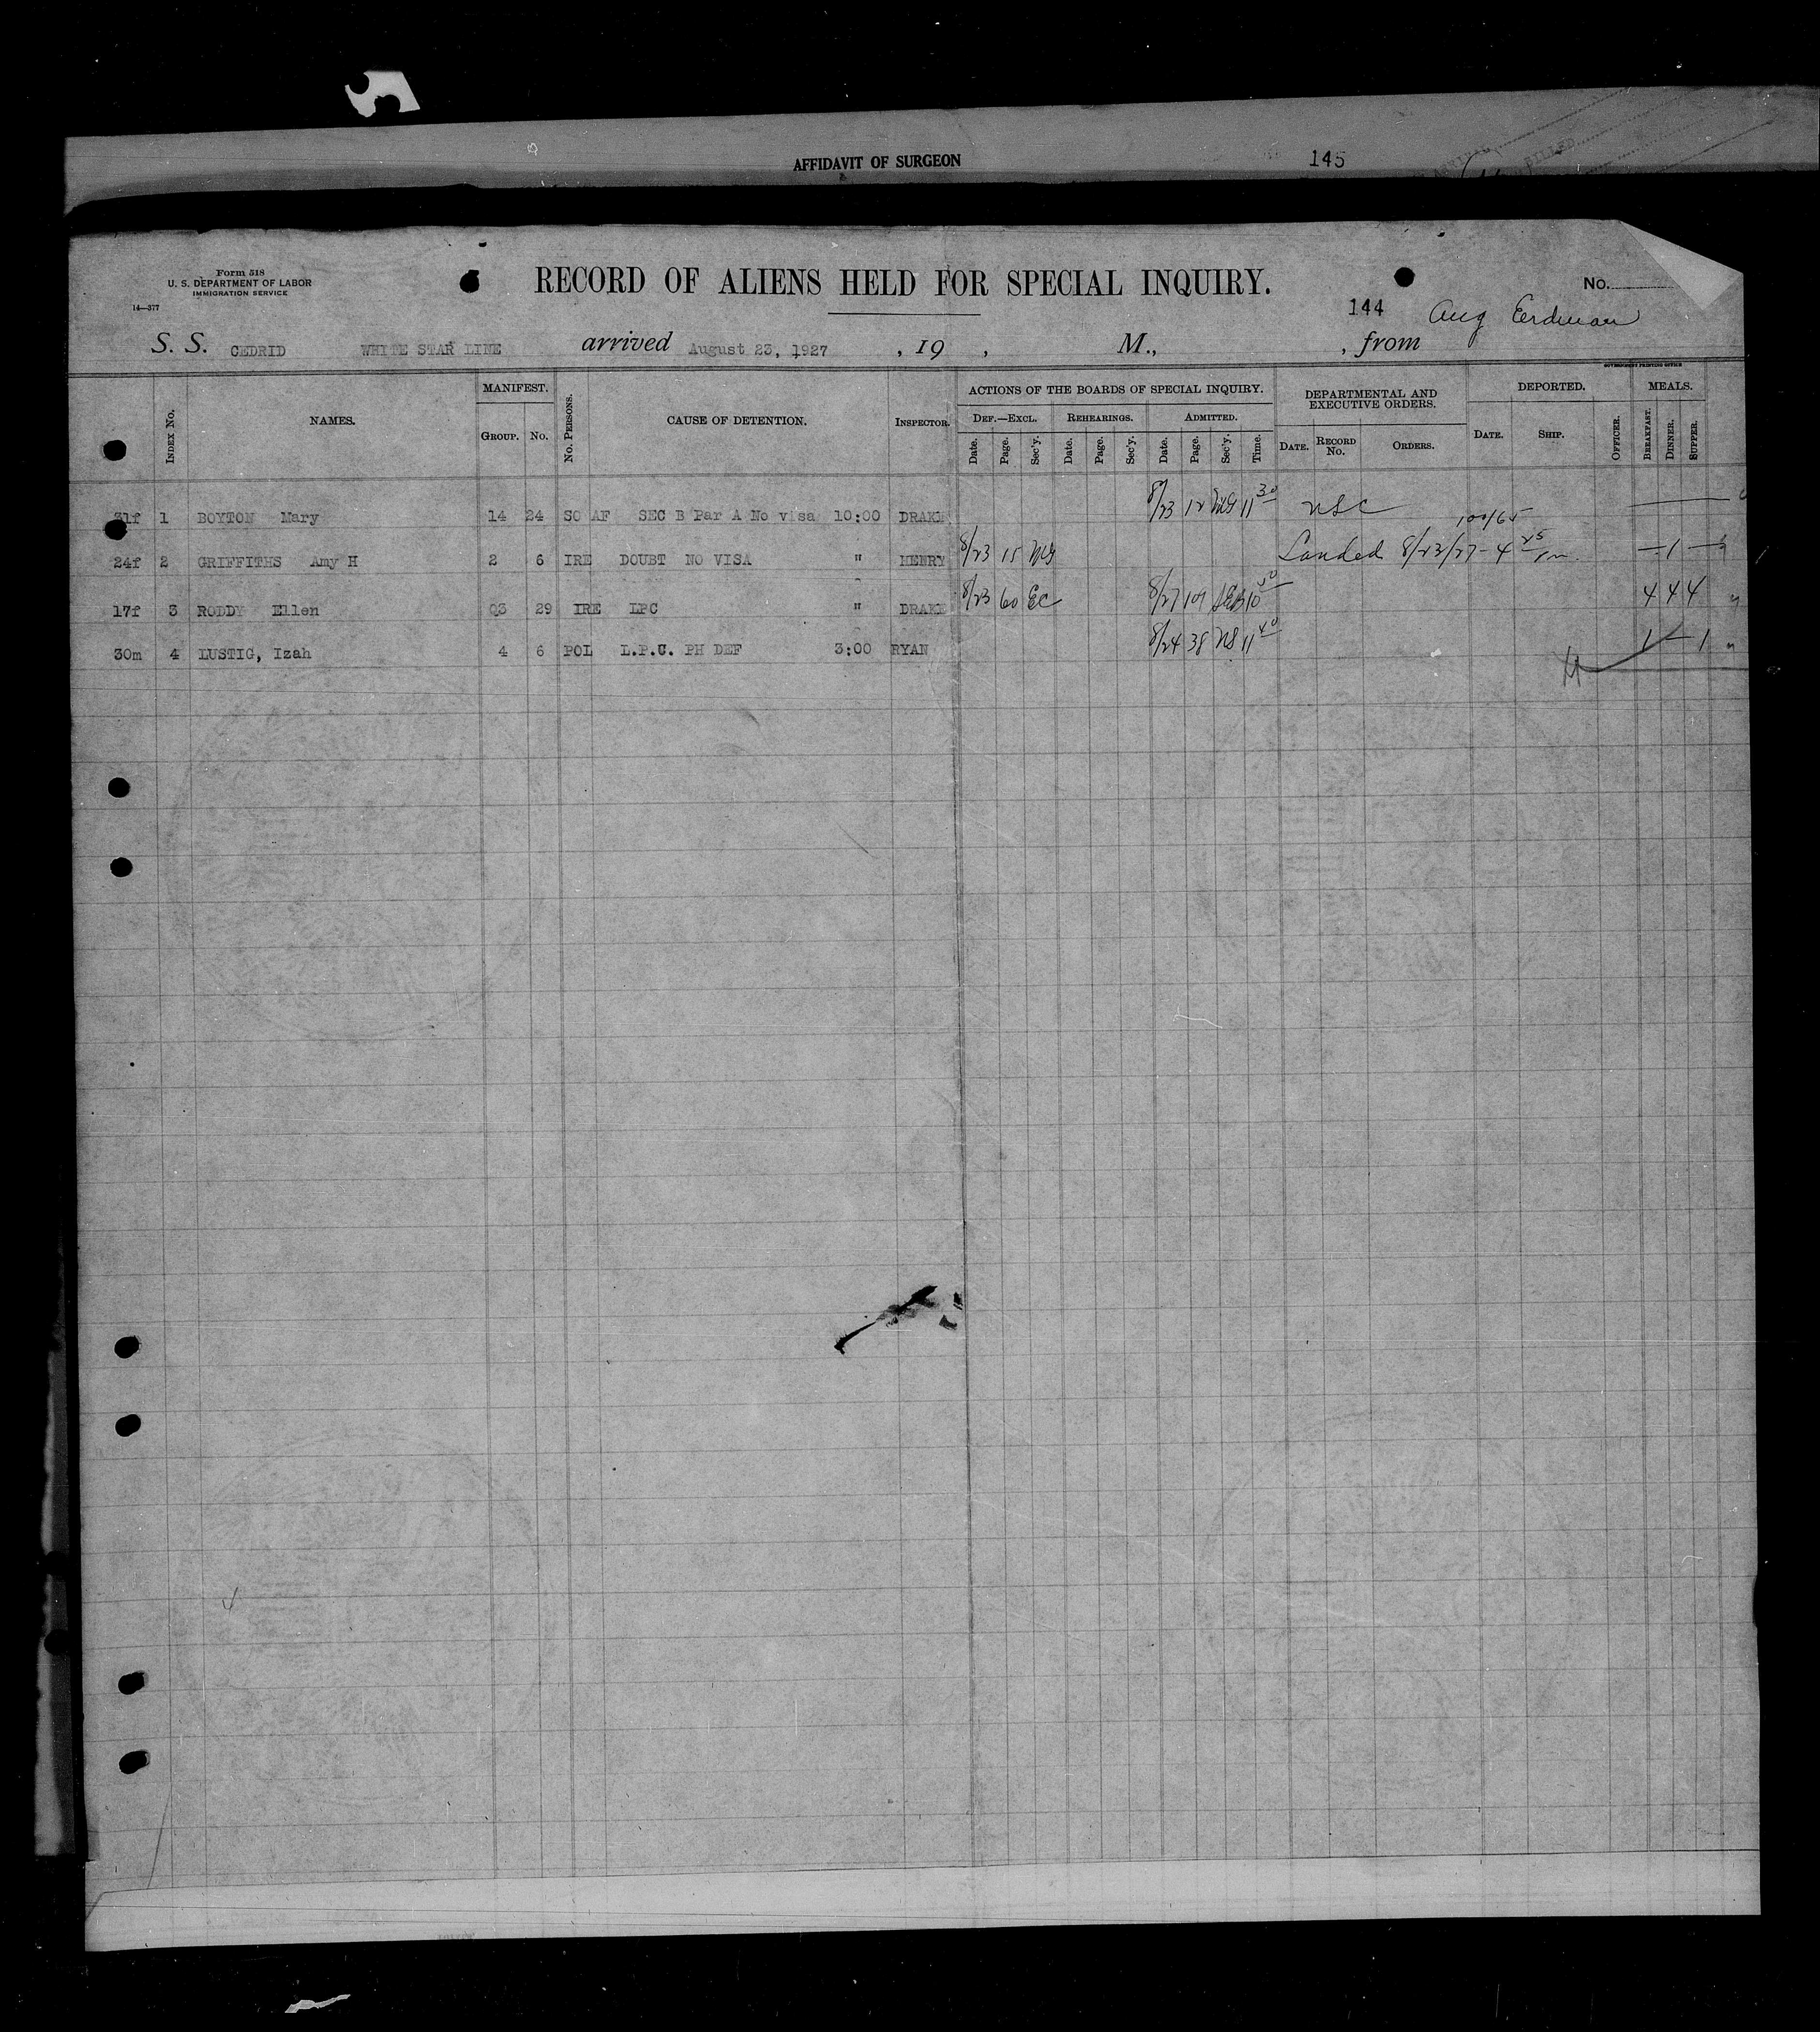 AFFIDAVIT OF SURGEON 145
Form 518
U. S. DEPARTMENT OF LABOR
IMMIGRATION SERVICE
14—377
RECORD OF ALIENS HELD FOR SPECIAL INQUIRY.
No.
144 Aug Eerdman
S. S. CEDRID WHITE STAR LINE arrived August 23, 1927 , 19 , M., , from
GOVERNMENT PRINTING OFFICE
INDEX No. NAMES. MANIFEST. No. PERSONS. CAUSE OF DETENTION. INSPECTOR. ACTIONS OF THE BOARDS OF SPECIAL INQUIRY. DEPARTMENTAL AND EXECUTIVE ORDERS. DEPORTED. MEALS.
GROUP. No. DEF.—EXCL. REHEARINGS. ADMITTED. DATE. RECORD No. ORDERS. DATE. SHIP. OFFICER. BREAKFAST. DINNER. SUPPER.
Date. Page. Sec'y. Date. Page. Sec'y. Date. Page. Sec'y. Time.
31f 1 BOYTON Mary 14 24 SO AF SEC B Par A No visa 10:00 DRAKE 8/23 12 11 30 USC
24f 2 GRIFFITHS Amy H 2 6 IRE DOUBT NO VISA " HENRY 8/23 15 Landed 8/23/27 - 4 25 pm. — 1 —
17f 3 RODDY Ellen Q3 29 IRE LPC " DRAKE 8/23 60 EC 8/27 10 4 4 4 "
30m 4 LUSTIG, Izah 4 6 POL L.P.C. PH DEF 3:00 RYAN 8/24 38 NS 11 40 1 — 1 "